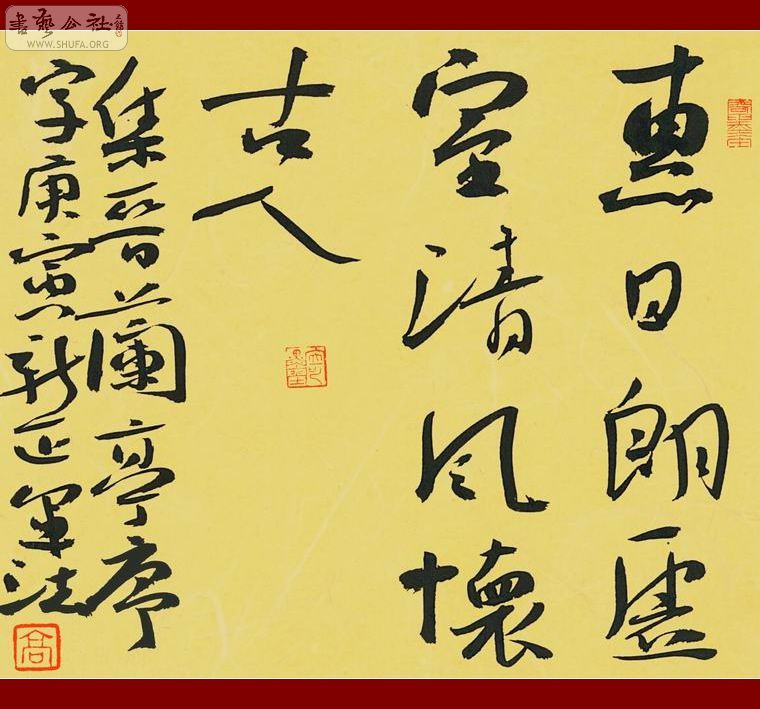 惠日朗虚
室清风懷
古人
集晋蘭亭序
字庚寅新正軍法
書藝公社
WWW.SHUFA.ORG